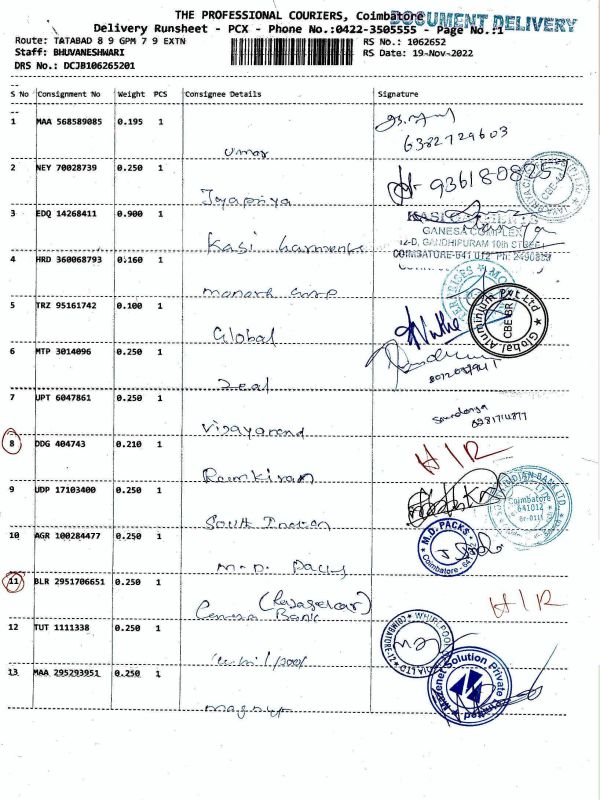 THE PROFESSIONAL COURIERS, Coimbatore
DOCUMENT DELIVERY
Delivery Runsheet - PCX - Phone No.:0422-3505555 - Page No.:1
Route: TATABAD 8 9 GPM 7 9 EXTN RS No.: 1062652
Staff: BHUVANESHWARI RS Date: 19-Nov-2022
DRS No.: DCJB106265201
S No Consignment No Weight PCS Consignee Details Signature
1 MAA 568589085 0.195 1
6382729603
Umar
2 NEY 70028739 0.250 1
9361808257
Jayapriya
3 EDQ 14268411 0.900 1
KASI GARMENTS
GANESA COMPLEX
12-D, GANDHIPURAM 10th STREET
Kasi Garments
COIMBATORE-641 012
4 HRD 360068793 0.160 1
Monark Corp
5 TRZ 95161742 0.100 1
Global Aluminium Pvt Ltd
CBE BR
Global
6 MTP 3014096 0.250 1
Zeal
7 UPT 6047861 0.250 1
Vijayanend
8 DDG 404743 0.210 1
H/R
Ramkiran
9 UDP 17103400 0.250 1
INDIAN BANK LTD
Coimbatore
641012
South Indian
10 AGR 100284477 0.250 1
M.D. PACKS
Coimbatore
M.D. Packs
11 BLR 2951706651 0.250 1
H/R
(Rajasekar)
Canara Bank
12 TUT 1111338 0.250 1
13 MAA 295293951 0.250 1
Solution Private